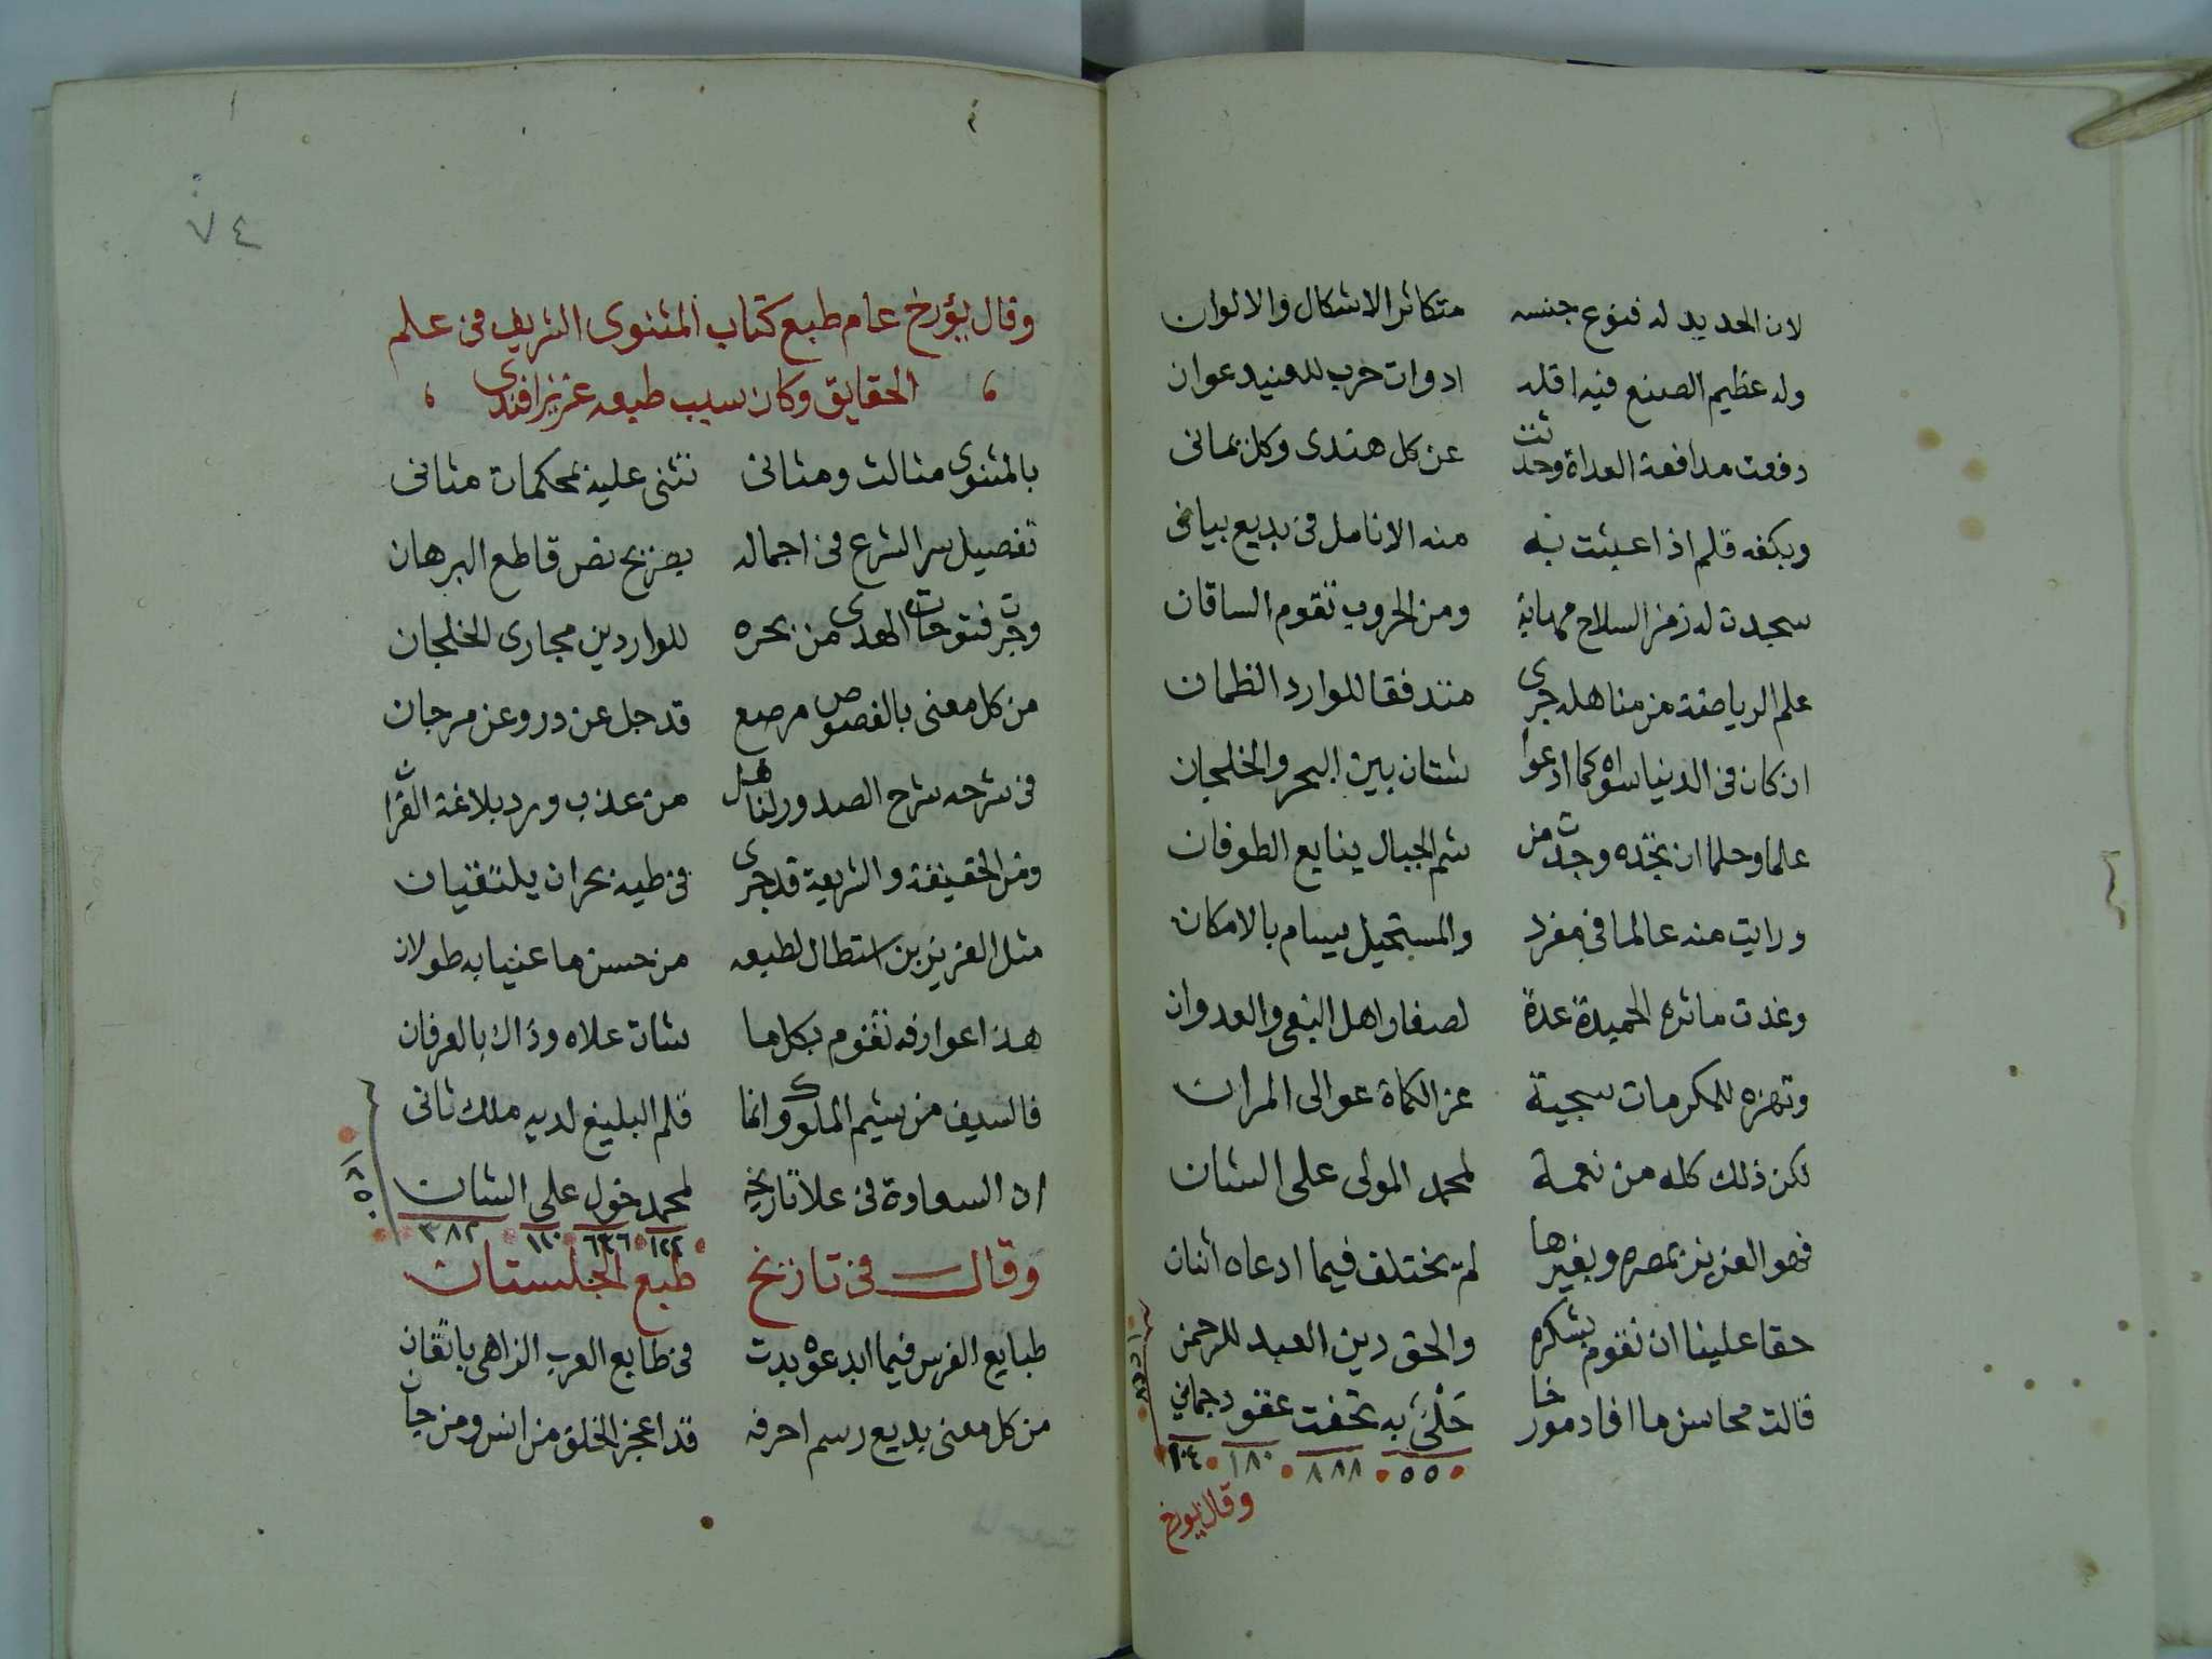 لان الحديد له فنوع جنسه متكاثر الاشكال والالوان
وله عظيم الصنع فيه اقله ادوات حرب للعنيد عوان
دفعت مدافعة العداة وحدثت عن كل هندى وكل يمانى
وبكفه قلم اذا عبثت به منه الانامل فى بديع بيانى
سجدت له زمر السلاح مهابة ومن الحروب تقوم الساقان
علم الرياضة من مناهله جرى متدفقا للوارد الظمان
ان كان فى الدنيا سواه كما ادعوا شتان بين البحر والخلجان
علما وحلما ان تجده وجدت من شم الجبال ينابع الطوفان
ورايت منه عالما فى مفرد والمستحيل يسام بالامكان
وغدت ماثره الحميدة عدة لصغار اهل البغى والعدوان
وتهزه للمكرمات سجية عز الكماة عوالى المران
لكن ذلك كله من نعمة لمحمد المولى على الشان
فهو العزيز بمصره وبغيرها لم يختلف فيما ادعاه اثنان
حقا علينا ان نقوم بشكره والحق دين العبد للرحمن
قالت محاسن ما افاد مورخا حلى به تحفت عقود جمانى
٥٥٠ ٨٨٨ ١٨٠ ١٠٤
وقال يورخ
٧٤
وقال يؤرخ عام طبع كتاب المثنوى الشريف فى علم
الحقايق وكان سبب طبعه عزيز افندى
بالمثنوى مثالث ومثانى تثنى عليه بمحكمات مثانى
تفصيل سر الشرع فى اجماله بصريح نص قاطع البرهان
وجرت فتوحات الهدى من بحره للواردين مجارى الخلجان
من كل معنى بالفصوص مرصع قد جل عن در وعن مرجان
فى شرحه شرح الصدور لناهل من عذب ورد بلاغة القران
ومن الحقيقة والشريعة قد جرى فى طيه بحران يلتقيان
مثل العزيزين استطال لطبعه من حسن ما عنيا به طولان
هذا عوارفه تقوم بكل ما شات علاه وذاك بالعرفان
فالسيف من شيم الملوك وانما قلم البليغ لديه ملك ثانى
ان السعادة فى علا تاريخه لمحمد خول على الشان
١٢٢ ٦٣٦ ١١٠ ٣٨٢
وقال فى تاريخ طبع الجلستان
طبايع الفرس فيما ابدعوه بدت فى طابع العرب الزاهى باتقان
من كل معنى بديع رسم احرفه قد اعجز الخلق من انس ومن جان